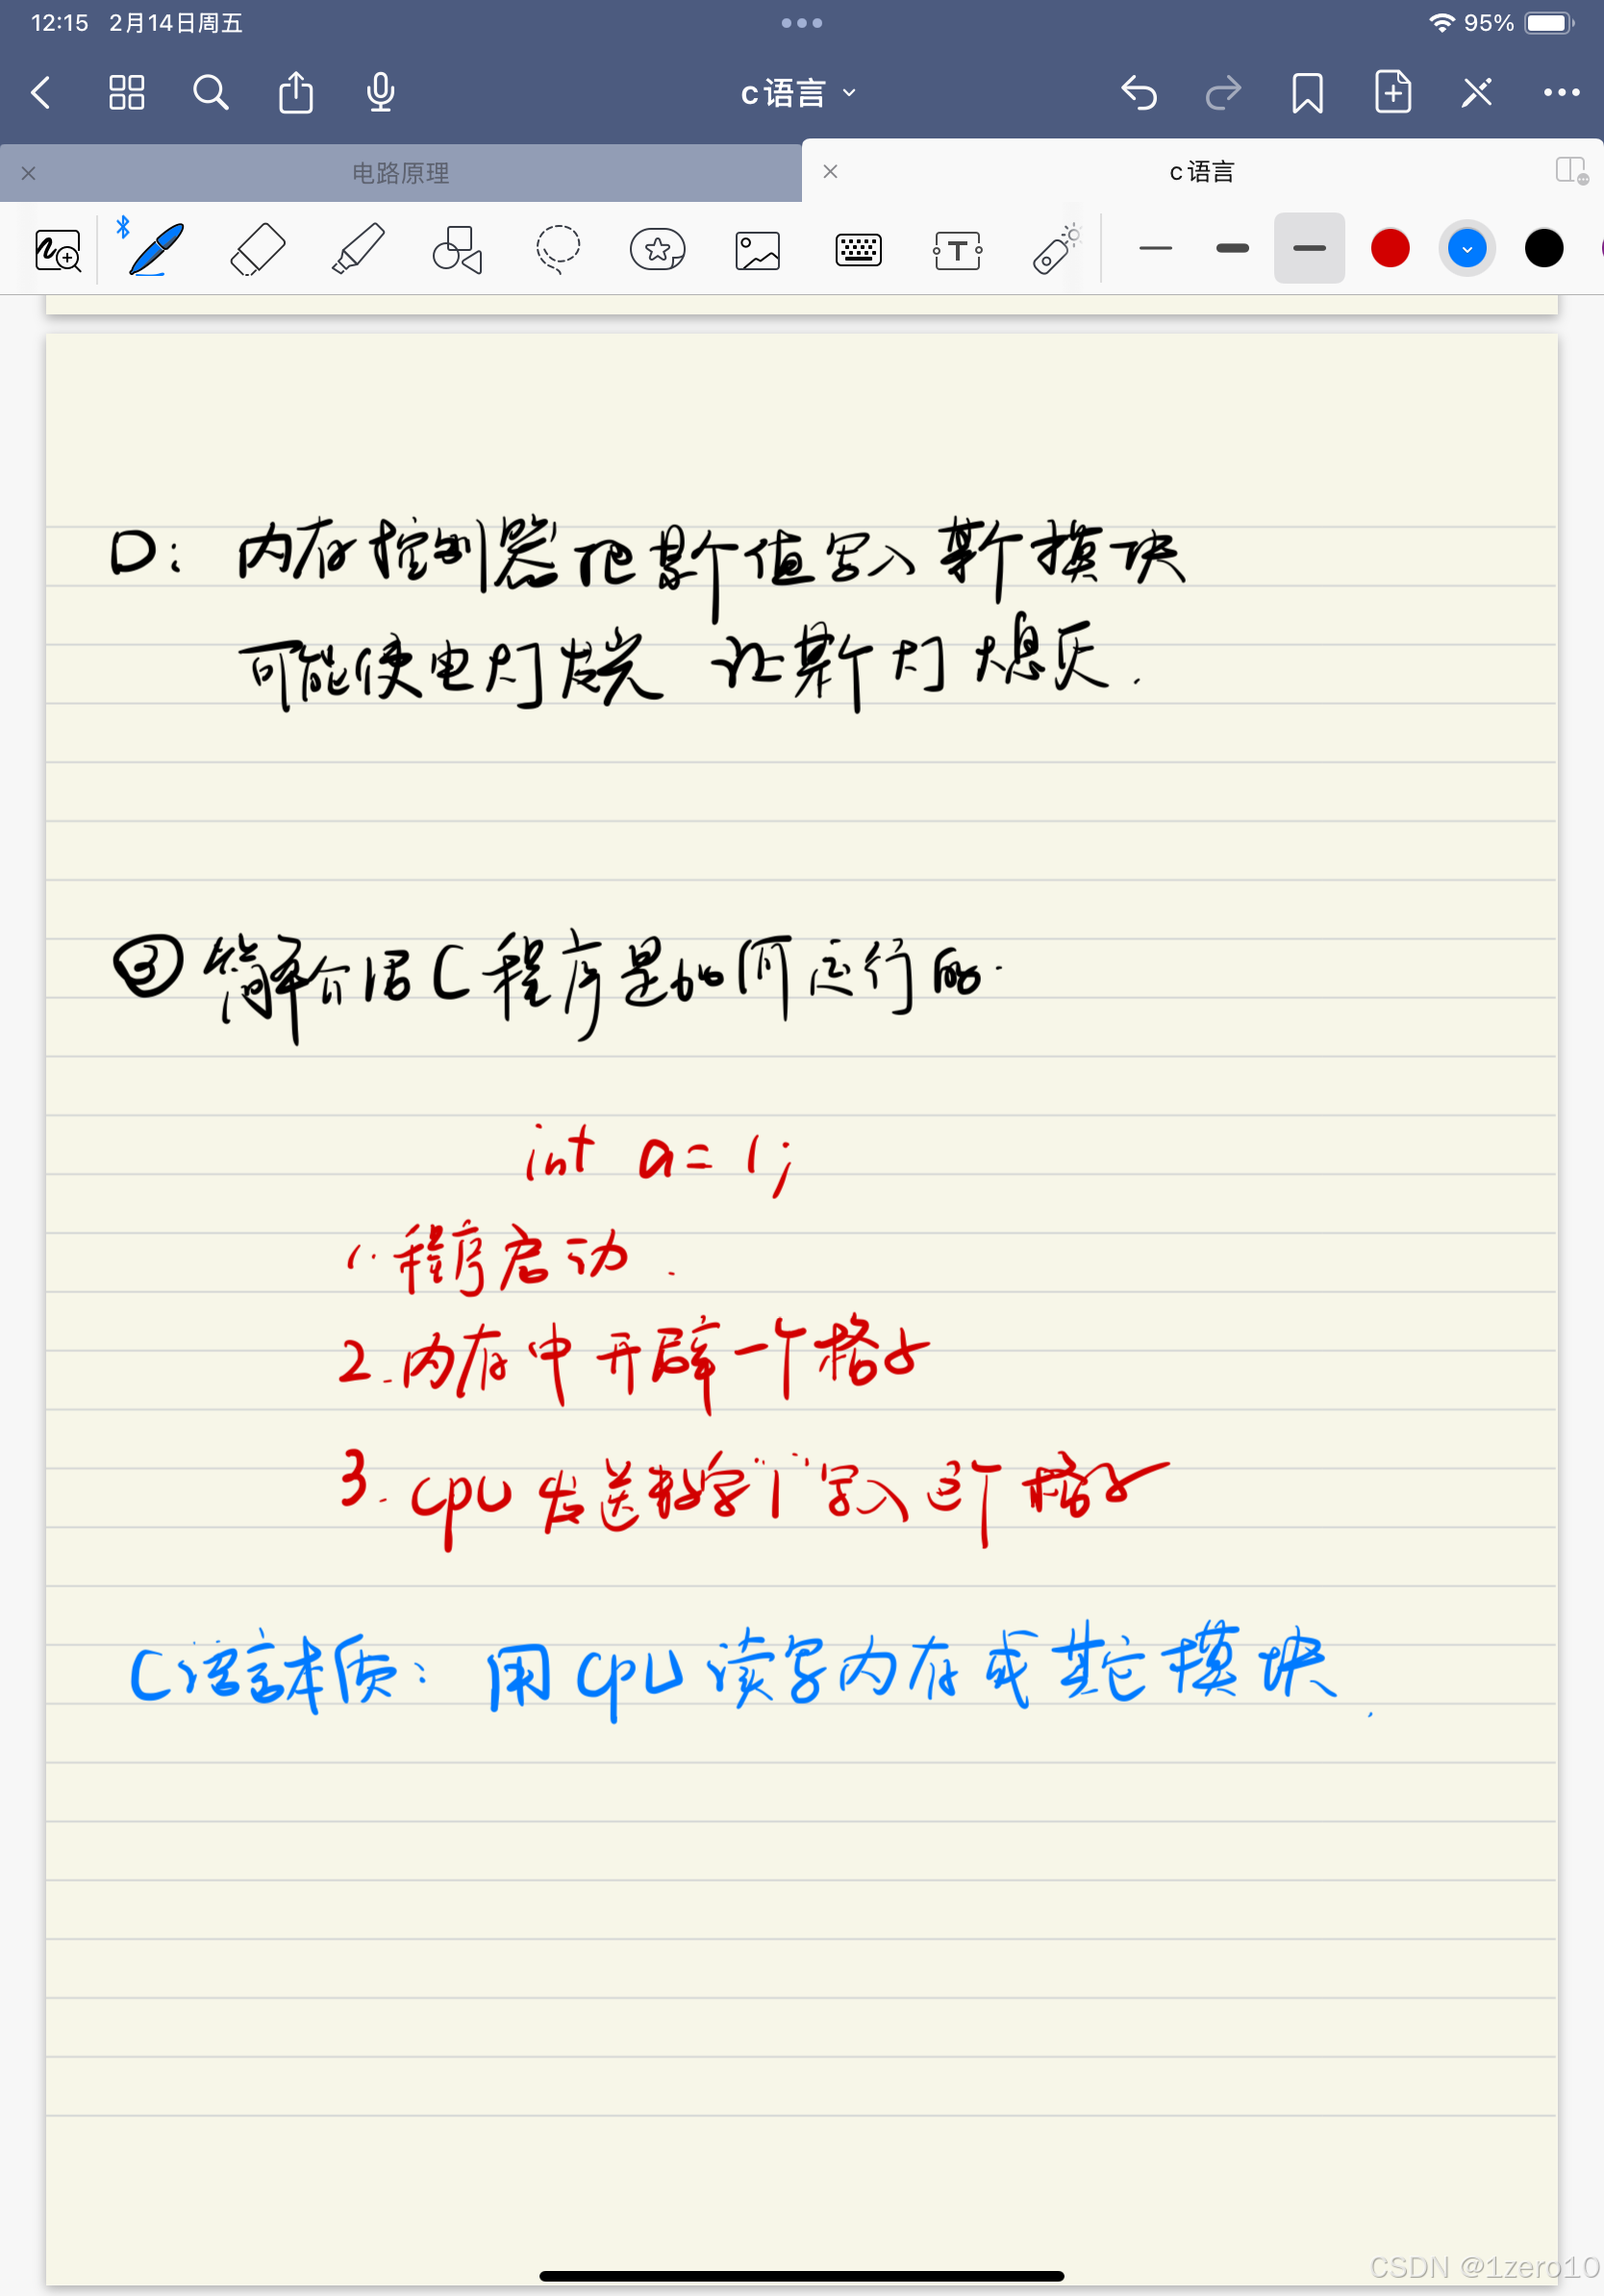 12:15 2月14日周五
95%
c语言
电路原理
c语言
D: 内存控制器把某个值写入某个模块
可能使电灯发光 让某个灯熄灭.
③ 简单介绍C程序是如何运行的.
int a = 1;
1. 程序启动.
2. 内存中开辟一个格子
3. CPU 发送数字"1"写入这个格子
C语言本质: 用CPU读写内存或其它模块.
CSDN @1zero10